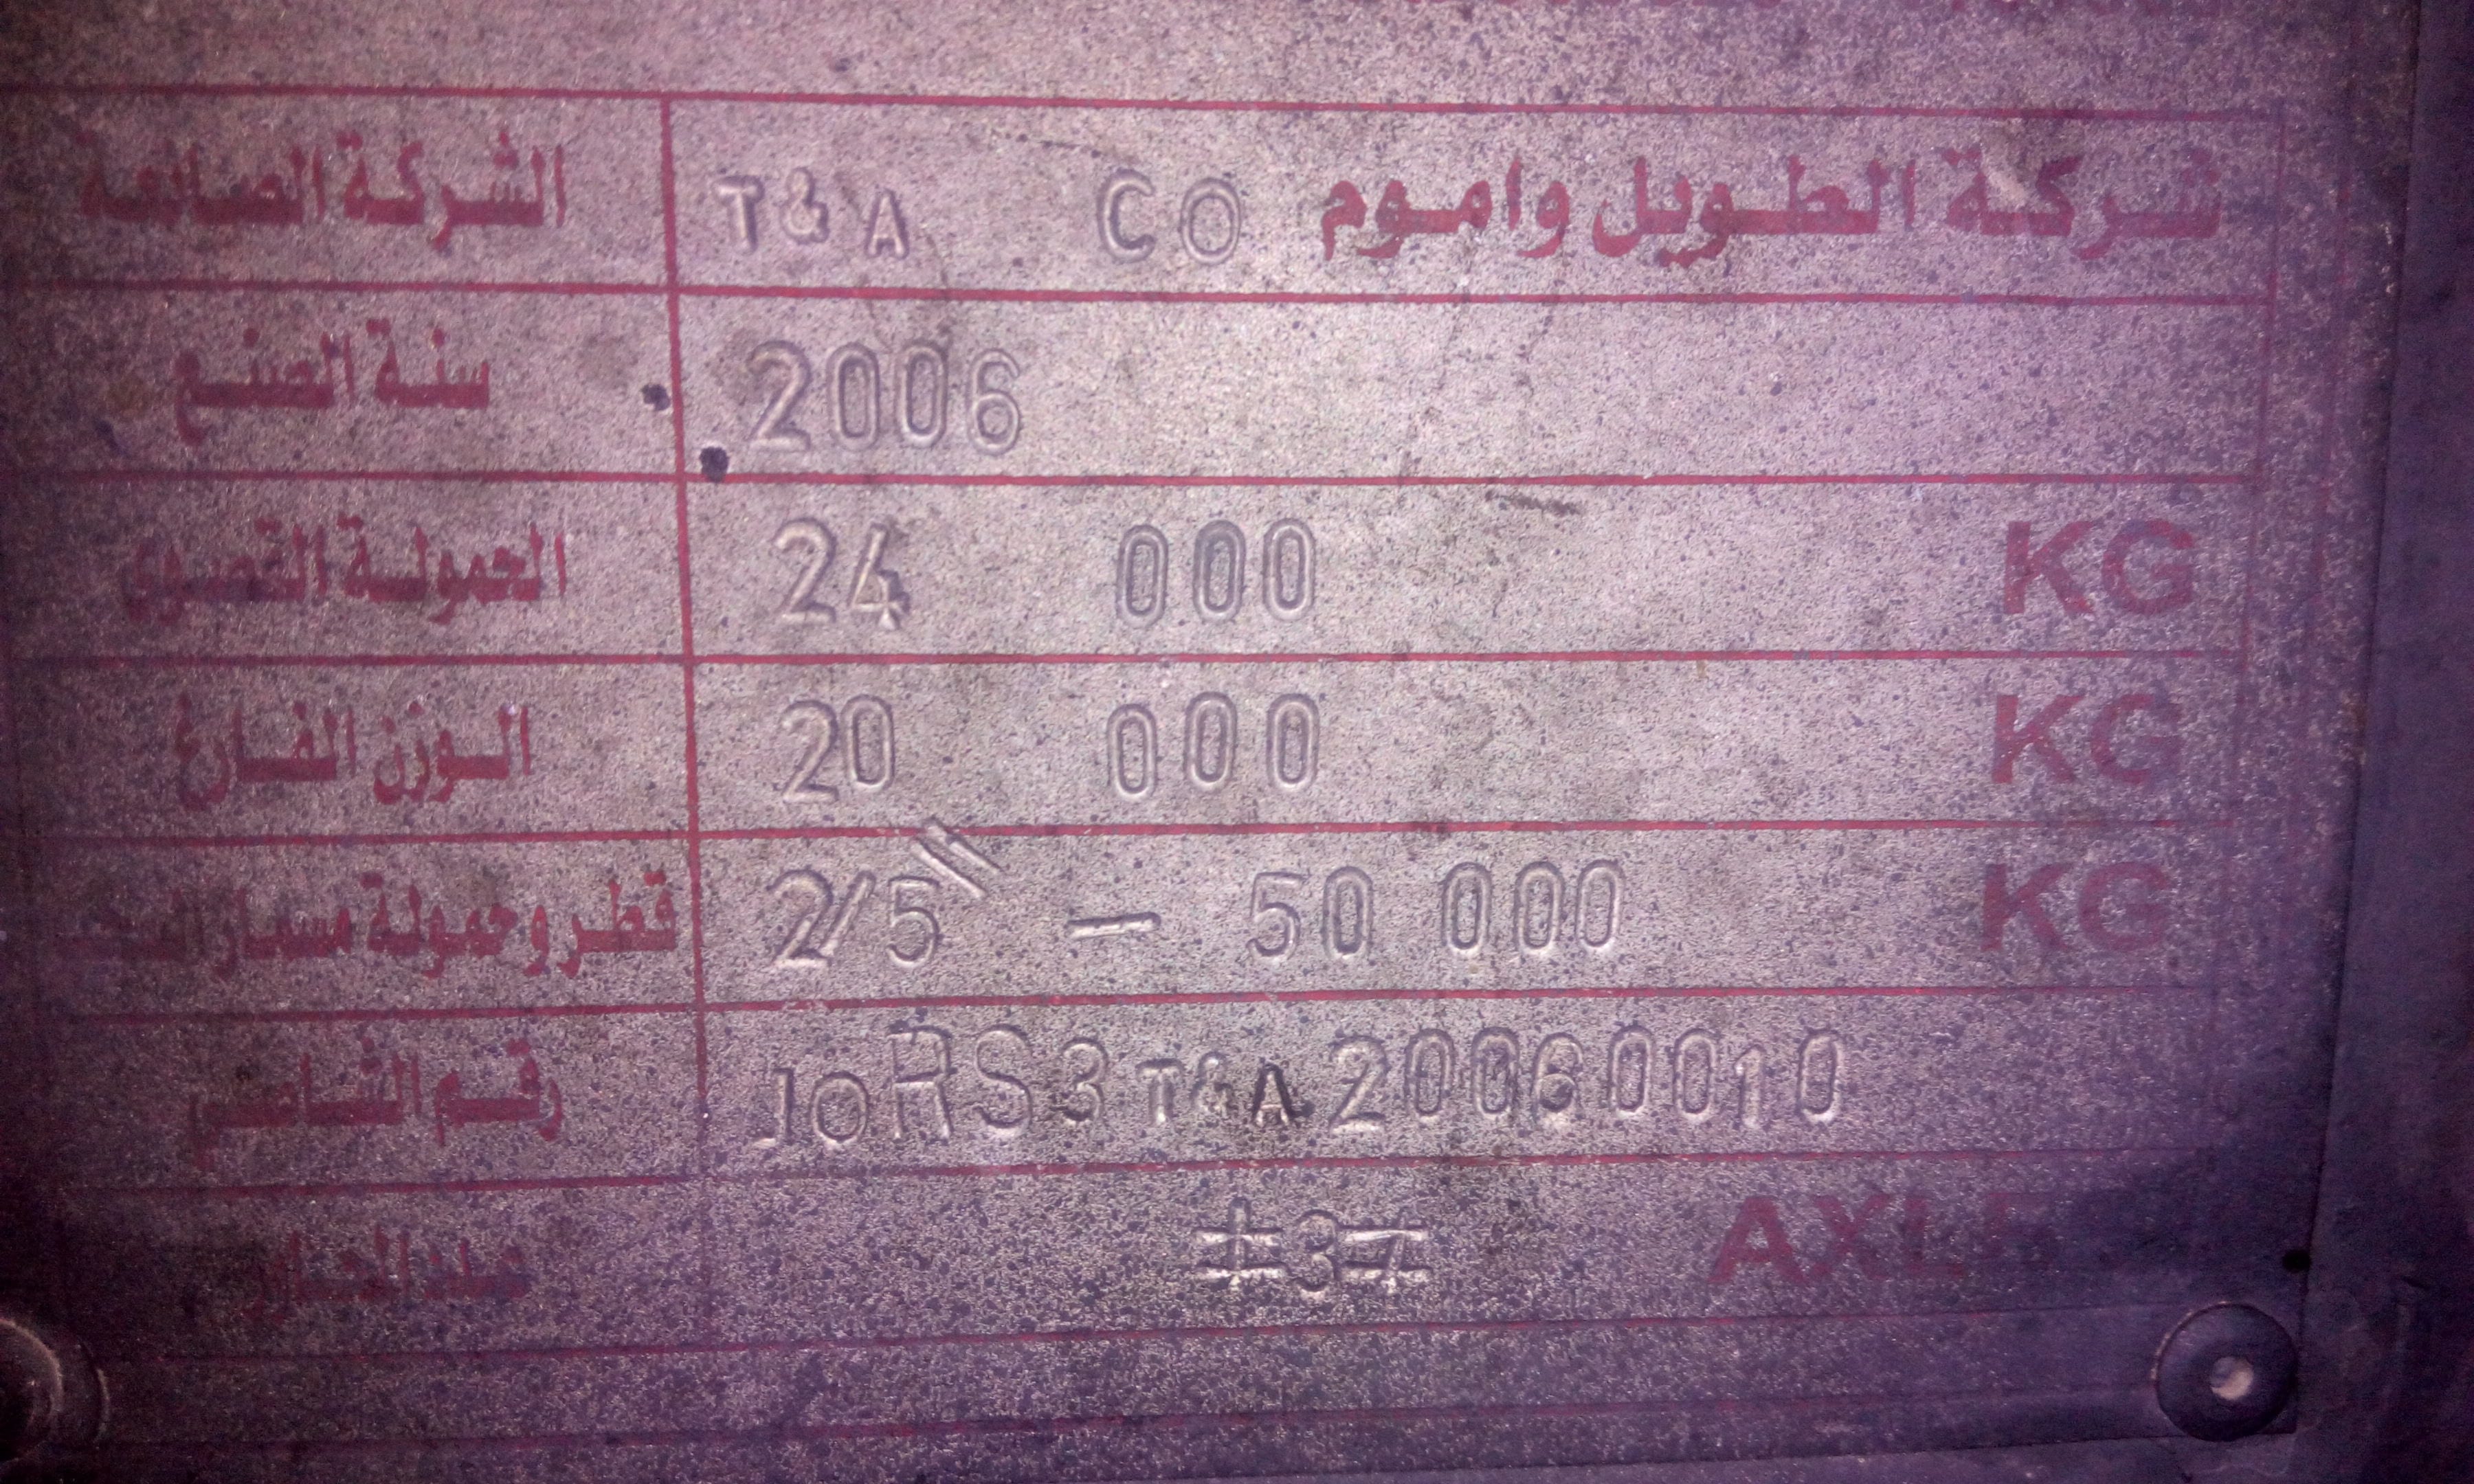 الشركة الصانعة T&A CO شركة الطويل واموم
سنة الصنع 2006
الحمولة القصوى 24 000 KG
الوزن الفارغ 20 000 KG
قطر وحمولة مسمار 2/5" - 50 000 KG
رقم الشاصي JoRS3T&A20060010
3 AXLE